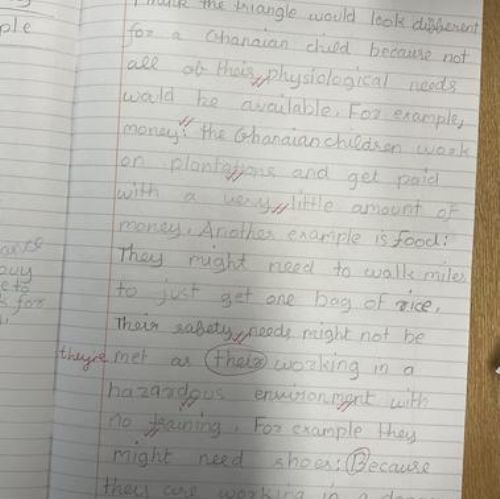 ple
I think the triangle would look different
for a Ghanaian child because not
all of their physiological needs
would be available. For example,
money: the Ghanaian children work
on plantations and get paid
with a very little amount of
money. Another example is food:
They might need to walk miles
to just get one bag of rice.
Their safety needs might not be
they're met as their working in a
hazardous environment with
no training. For example they
might need shoes: Because
they are working in a
buy
e to
for